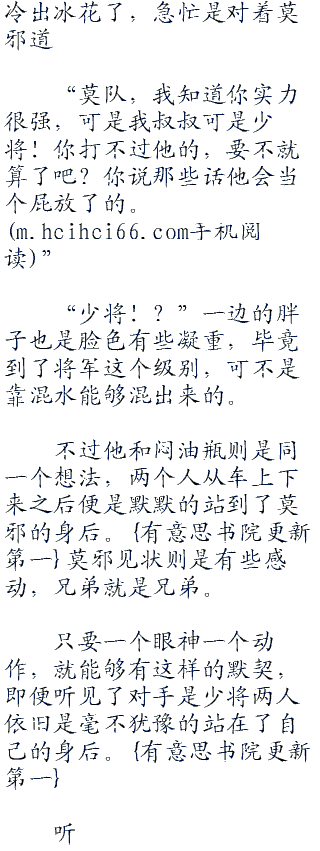 冷出冰花了，急忙是对着莫
邪道
“莫队，我知道你实力
很强，可是我叔叔可是少
将！你打不过他的，要不就
算了吧？你说那些话他会当
个屁放了的。
(m.hcihci66.com手机阅
读)”
“少将！？”一边的胖
子也是脸色有些凝重，毕竟
到了将军这个级别，可不是
靠混水能够混出来的。
不过他和闷油瓶则是同
一个想法，两个人从车上下
来之后便是默默的站到了莫
邪的身后。{有意思书院更新
第一}莫邪见状则是有些感
动，兄弟就是兄弟。
只要一个眼神一个动
作，就能够有这样的默契，
即便听见了对手是少将两人
依旧是毫不犹豫的站在了自
己的身后。{有意思书院更新
第一}
听